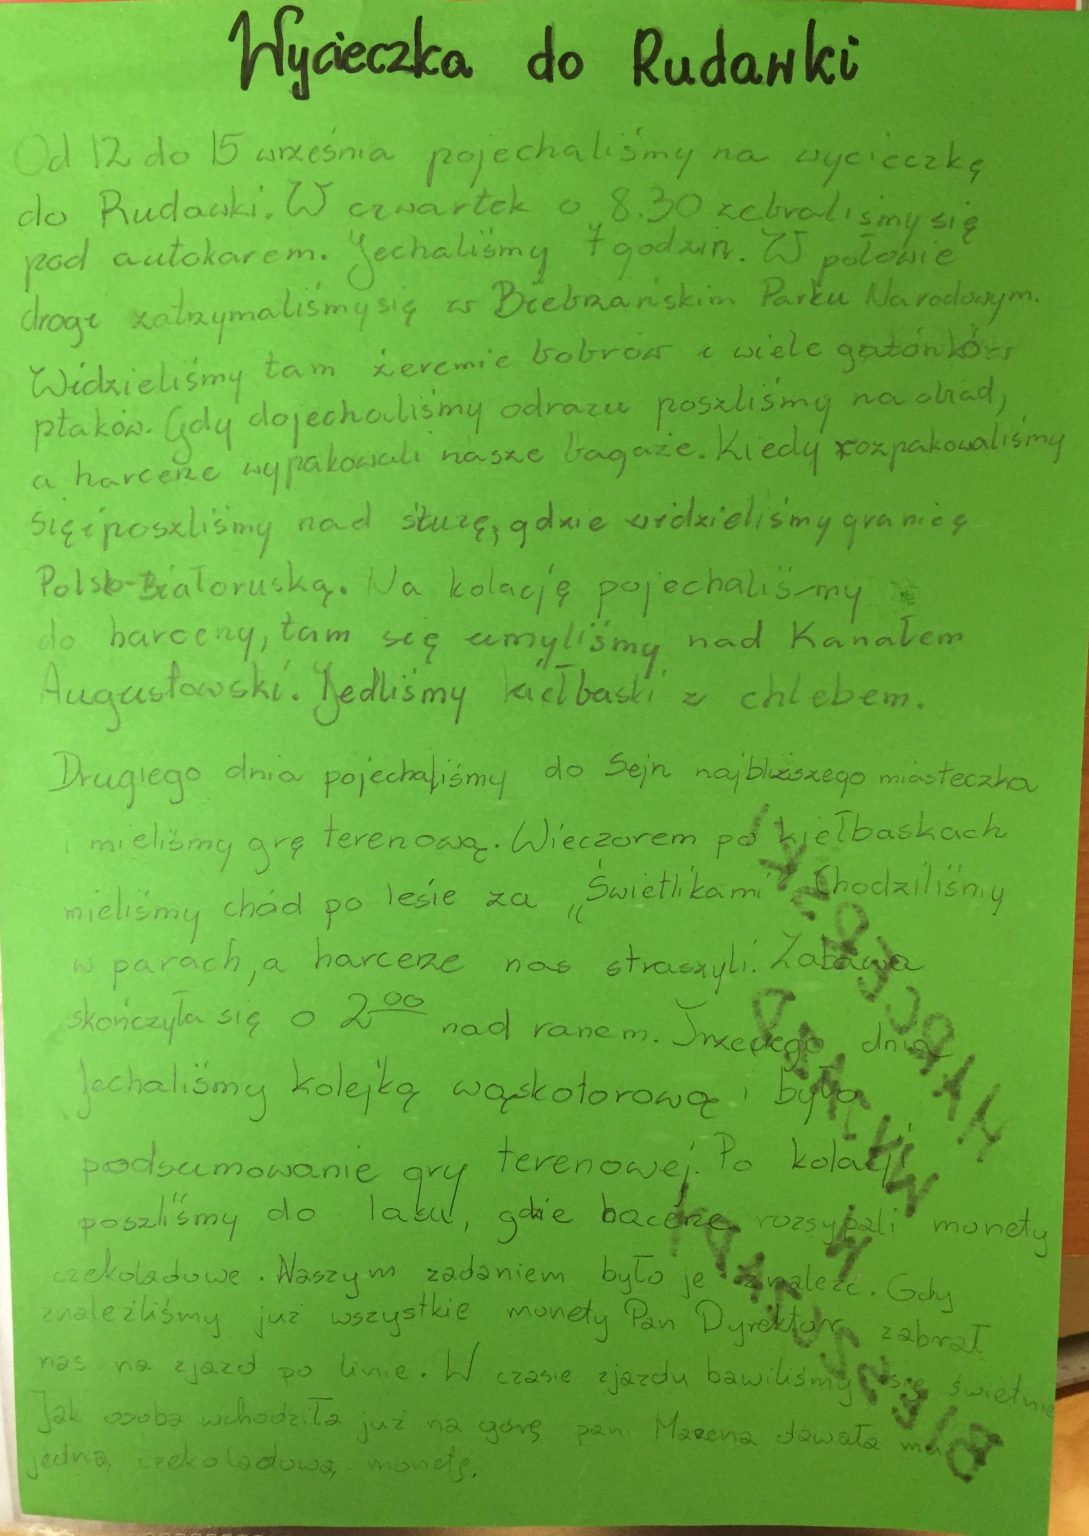 Wycieczka do Rudawki
Od 12 do 15 września pojechaliśmy na wycieczkę
do Rudawki. W czwartek o 8.30 zebraliśmy się
pod autokarem. Jechaliśmy 7 godzin. W połowie
drogi zatrzymaliśmy się w Biebrzańskim Parku Narodowym.
Widzieliśmy tam żeremie bobrów i wiele gatónków
ptaków. Gdy dojechaliśmy odrazu poszliśmy na obiad,
a harcerze wypakowali nasze bagaże. Kiedy rozpakowaliśmy
się poszliśmy nad śluzę, gdzie widzieliśmy granicę
Polsko-Białoruską. Na kolację pojechaliśmy
do harceny, tam się umyliśmy nad Kanałem
Augustowski. Jedliśmy kiełbaski z chlebem.
Drugiego dnia pojechaliśmy do Sejn najbliższego miasteczka
i mieliśmy grę terenową. Wieczorem po kiełbaskach
mieliśmy chód po lesie za „Świetlikami". Chodziliśmy
w parach, a harcerze nas straszyli. Zabawa
skończyła się o 2⁰⁰ nad ranem. Trzeciego dnia
Jechaliśmy kolejką wąskotorową i było
podsumowanie gry terenowej. Po kolacji
poszliśmy do lasu, gdzie rozsypali monety
czekoladowe. Naszym zadaniem było je znaleźć. Gdy
znaleźliśmy już wszystkie monety Pan Dyrektor zabrał
nas na zjazd po linie. W czasie zjazdu bawiliśmy się świetnie
Jak osoba wchodziła już na górę pani Marzena dawała mu
jedną czekoladową monetę.